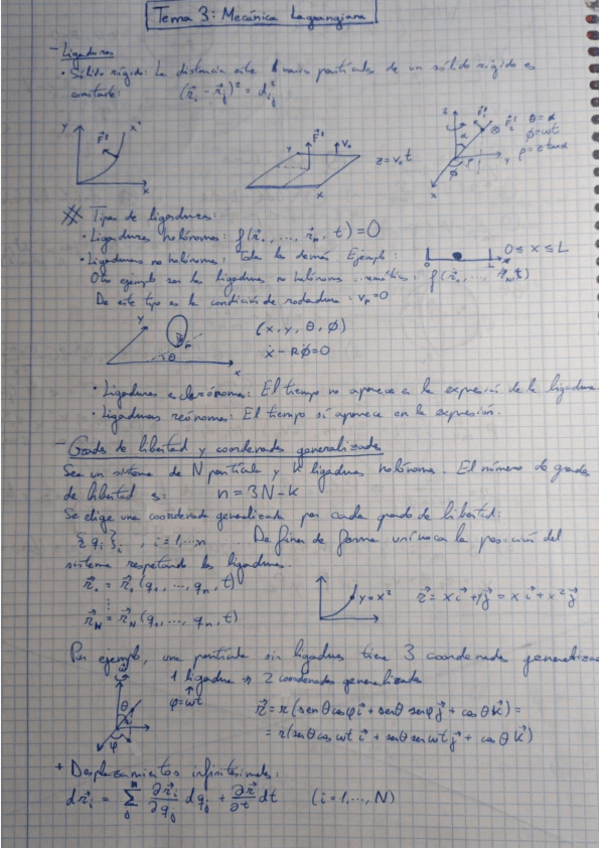 Tema 3: Mecánica Lagrangiana
- Ligaduras
• Sólido rígido: La distancia entre varias partículas de un sólido rígido es
constante: (r⃗i - r⃗j)² = d²ij
y x² F⃗ x
y F⃗ v₀ x z = v₀t
z α θ = α
φ = ωt
ρ = z tan α
x φ ρ y
Tipos de ligaduras:
• Ligaduras holónomas: f(r⃗₁, ..., r⃗n, t) = 0
• Ligaduras no holónomas: Todas las demás. Ejemplo: 0 L x 0 ≤ x ≤ L
Otro ejemplo son las ligaduras no holónomas : f(r⃗₁, ..., r⃗n, t)
De este tipo es la condición de rodadura: vp = 0
y θ x (x, y, θ, φ)
ẋ - Rφ̇ = 0
• Ligaduras esclerónomas: El tiempo no aparece en la expresión de la ligadura.
• Ligaduras reónomas: El tiempo sí aparece en la expresión.
- Grados de libertad y coordenadas generalizadas
Sea un sistema de N partículas y k ligaduras holónomas. El número de grados
de libertad es: n = 3N - k
Se elige una coordenada generalizada por cada grado de libertad:
{qi}i , i = 1, ... n Definen de forma unívoca la posición del
sistema respetando las ligaduras.
r⃗₁ = r⃗₁(q₁, ..., qn, t)
⋮
r⃗N = r⃗N(q₁, ..., qn, t)
y = x² r⃗ = x i⃗ + y j⃗ = x i⃗ + x² j⃗
Por ejemplo, una partícula sin ligaduras tiene 3 coordenadas generalizadas
1 ligadura → 2 coordenadas generalizadas
φ = ωt
ω⃗ θ φ
r⃗ = r(sen θ cos φ i⃗ + sen θ sen φ j⃗ + cos θ k⃗) =
= r(sen θ cos ωt i⃗ + sen θ sen ωt j⃗ + cos θ k⃗)
+ Desplazamientos infinitesimales:
dr⃗i = Σ ∂r⃗i/∂qj dqj + ∂r⃗/∂t dt (i = 1, ..., N)